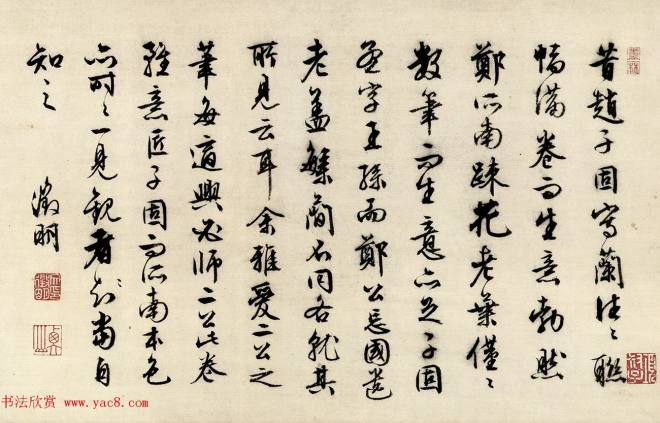 昔趙子固寫蘭往々聯
幅滿卷而生意勃然
鄭所南疎花老葉僅々
數筆而生意亦足子固
王孫而鄭公忘國遺
老蓋繁簡不同各就其
所見云耳余雅愛二公之
筆每適興必師二公此卷
雖意匠子固而所南本色
亦時々一見觀者當自
知之
徵明
书法欣赏 www.yac8.com